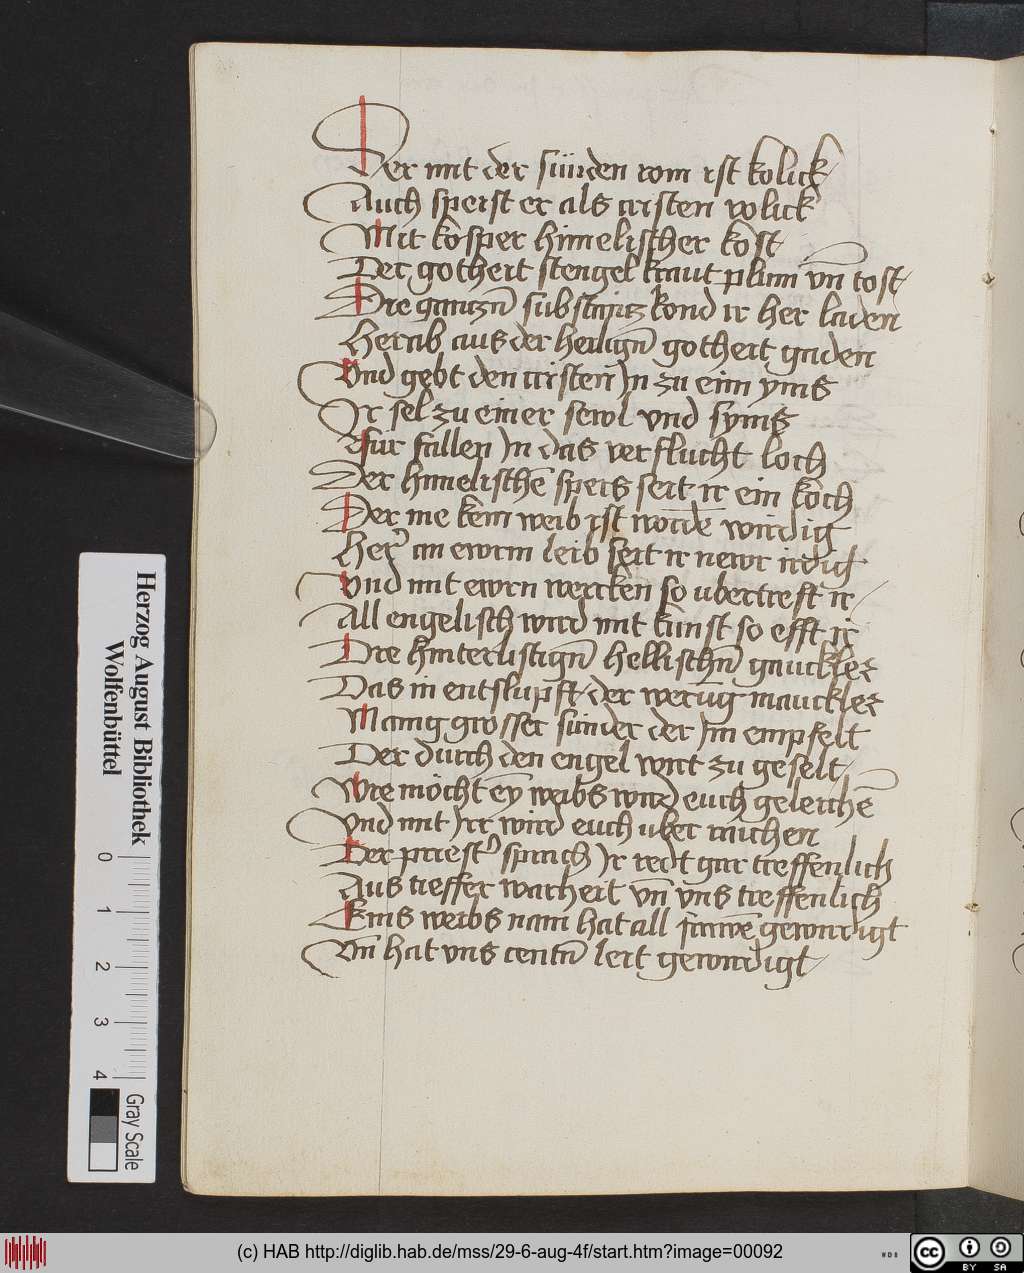 Der mit der sünden rom ist kolick
Auch speist er als cristen volick
Mit kosper himelischer kost
Der gotheit stengel kraut plum vn̄ tost
Die gantzn̄ substantz kond ir her laden
Herab aus der heilign̄ gotheit gaden
Vnd gebt den cristen Jn zu eim yms
Ir sel zu einer sewl vnd syms
fur fallen Jn das verflucht loch
Der himelischē speis seit ir ein koch
Der nie kein weib ist wordē wirdig
Her an ewrm leib seit ir newr irdig
Vnd mit ewrn wercken so ubertreft ir
All engelisch wird mit kunst so efft ir
Die hinterlistign̄ hellischn̄ gauckler
Das in entslupft der werūg mauckler
Manig grosser sunder der Jm empfelt
Der durch den engel wirt zu geselt
Wie möcht ey̅ weibs wird euch geleichē
Vnd mit Jrr wird euch uber raichen
Der priest' sprach Jr redt gar treffenlich
Aus tieffer warheit vn̄ vns treffenlich
Eins weibs nam hat all gewirdigt
Vn̄ hat vns leit gewirdigt
Herzog August Bibliothek
Wolfenbüttel
0 1 2 3 4
Gray Scale
(c) HAB http://diglib.hab.de/mss/29-6-aug-4f/start.htm?image=00092
WDB
cc BY SA